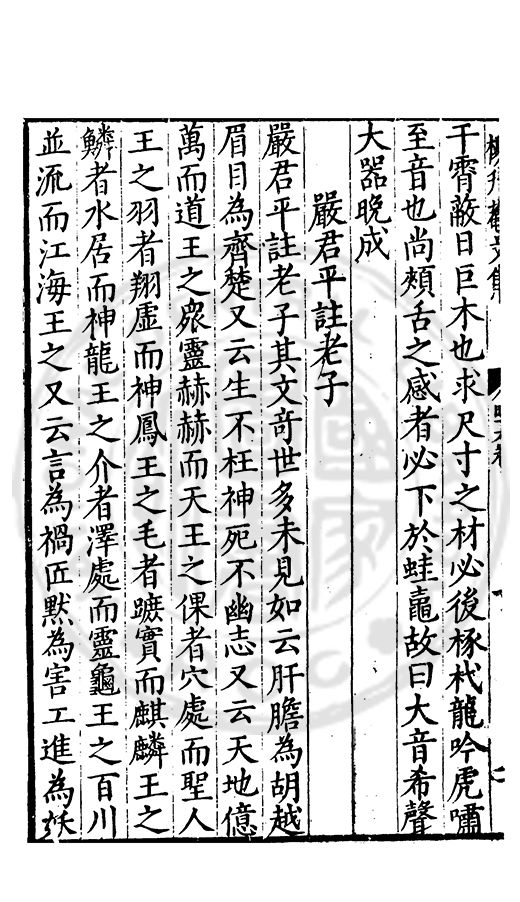 干霄蔽日巨木也求尺寸之材必後椓杙龍吟虎嘯
至音也尚頰舌之感者必下於蛙黽故曰大音希聲
大器晚成
嚴君平註老子
嚴君平註老子其文奇世多未見如云肝膽為胡越
眉目為齊楚又云生不枉神死不幽志又云天地億
萬而道王之眾靈赫赫而天王之倮者穴處而聖人
王之羽者翔虛而神鳳王之毛者蹠實而麒麟王之
鱗者水居而神龍王之介者澤處而靈龜王之百川
並流而江海王之又云言為禍匠默為害工進為妖